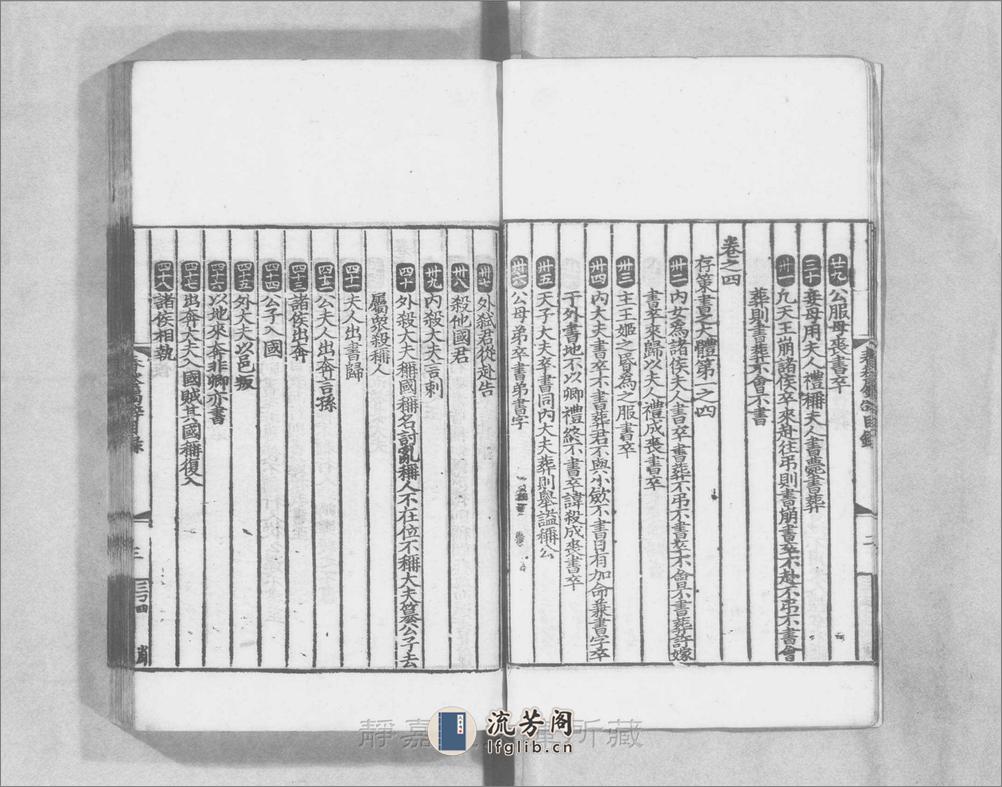 廿九 公服母喪書卒
三十 妾母用夫人禮稱夫人書薨書葬
卅一 凢天王崩諸侯卒來赴徃吊則書崩書卒不赴不吊不書會
葬則書葬不會不書
卷之四
存策書大體第一之四
卅二 内女為諸侯夫人書卒書葬不吊不書卒不會不書葬許嫁
書卒來歸以夫人禮成喪書卒
卅三 主王姬之昏為之服書卒
卅四 内大夫書卒不書葬君不與小斂不書日有加命兼書字卒
于外書地不以卿禮終不書卒諱殺成喪書卒
卅五 天子大夫卒書同内大夫葬則舉謚稱公
卅六 公母弟卒書弟書字
卅七 外弑君從赴告
卅八 殺他國君
卅九 内殺大夫言刺
四十 外殺大夫稱國稱名討亂稱人不在位不稱大夫簒公子去
屬衆殺稱人
四十一 夫人出書歸
四十二 公夫人出奔言孫
四十三 諸侯出奔
四十四 公子入國
四十五 外大夫以邑叛
四十六 以地來奔非卿亦書
四十七 出奔大夫入國賊其國稱復入
四十八 諸侯相執
三
靜嘉 所藏
流芳阁
lfglib.cn